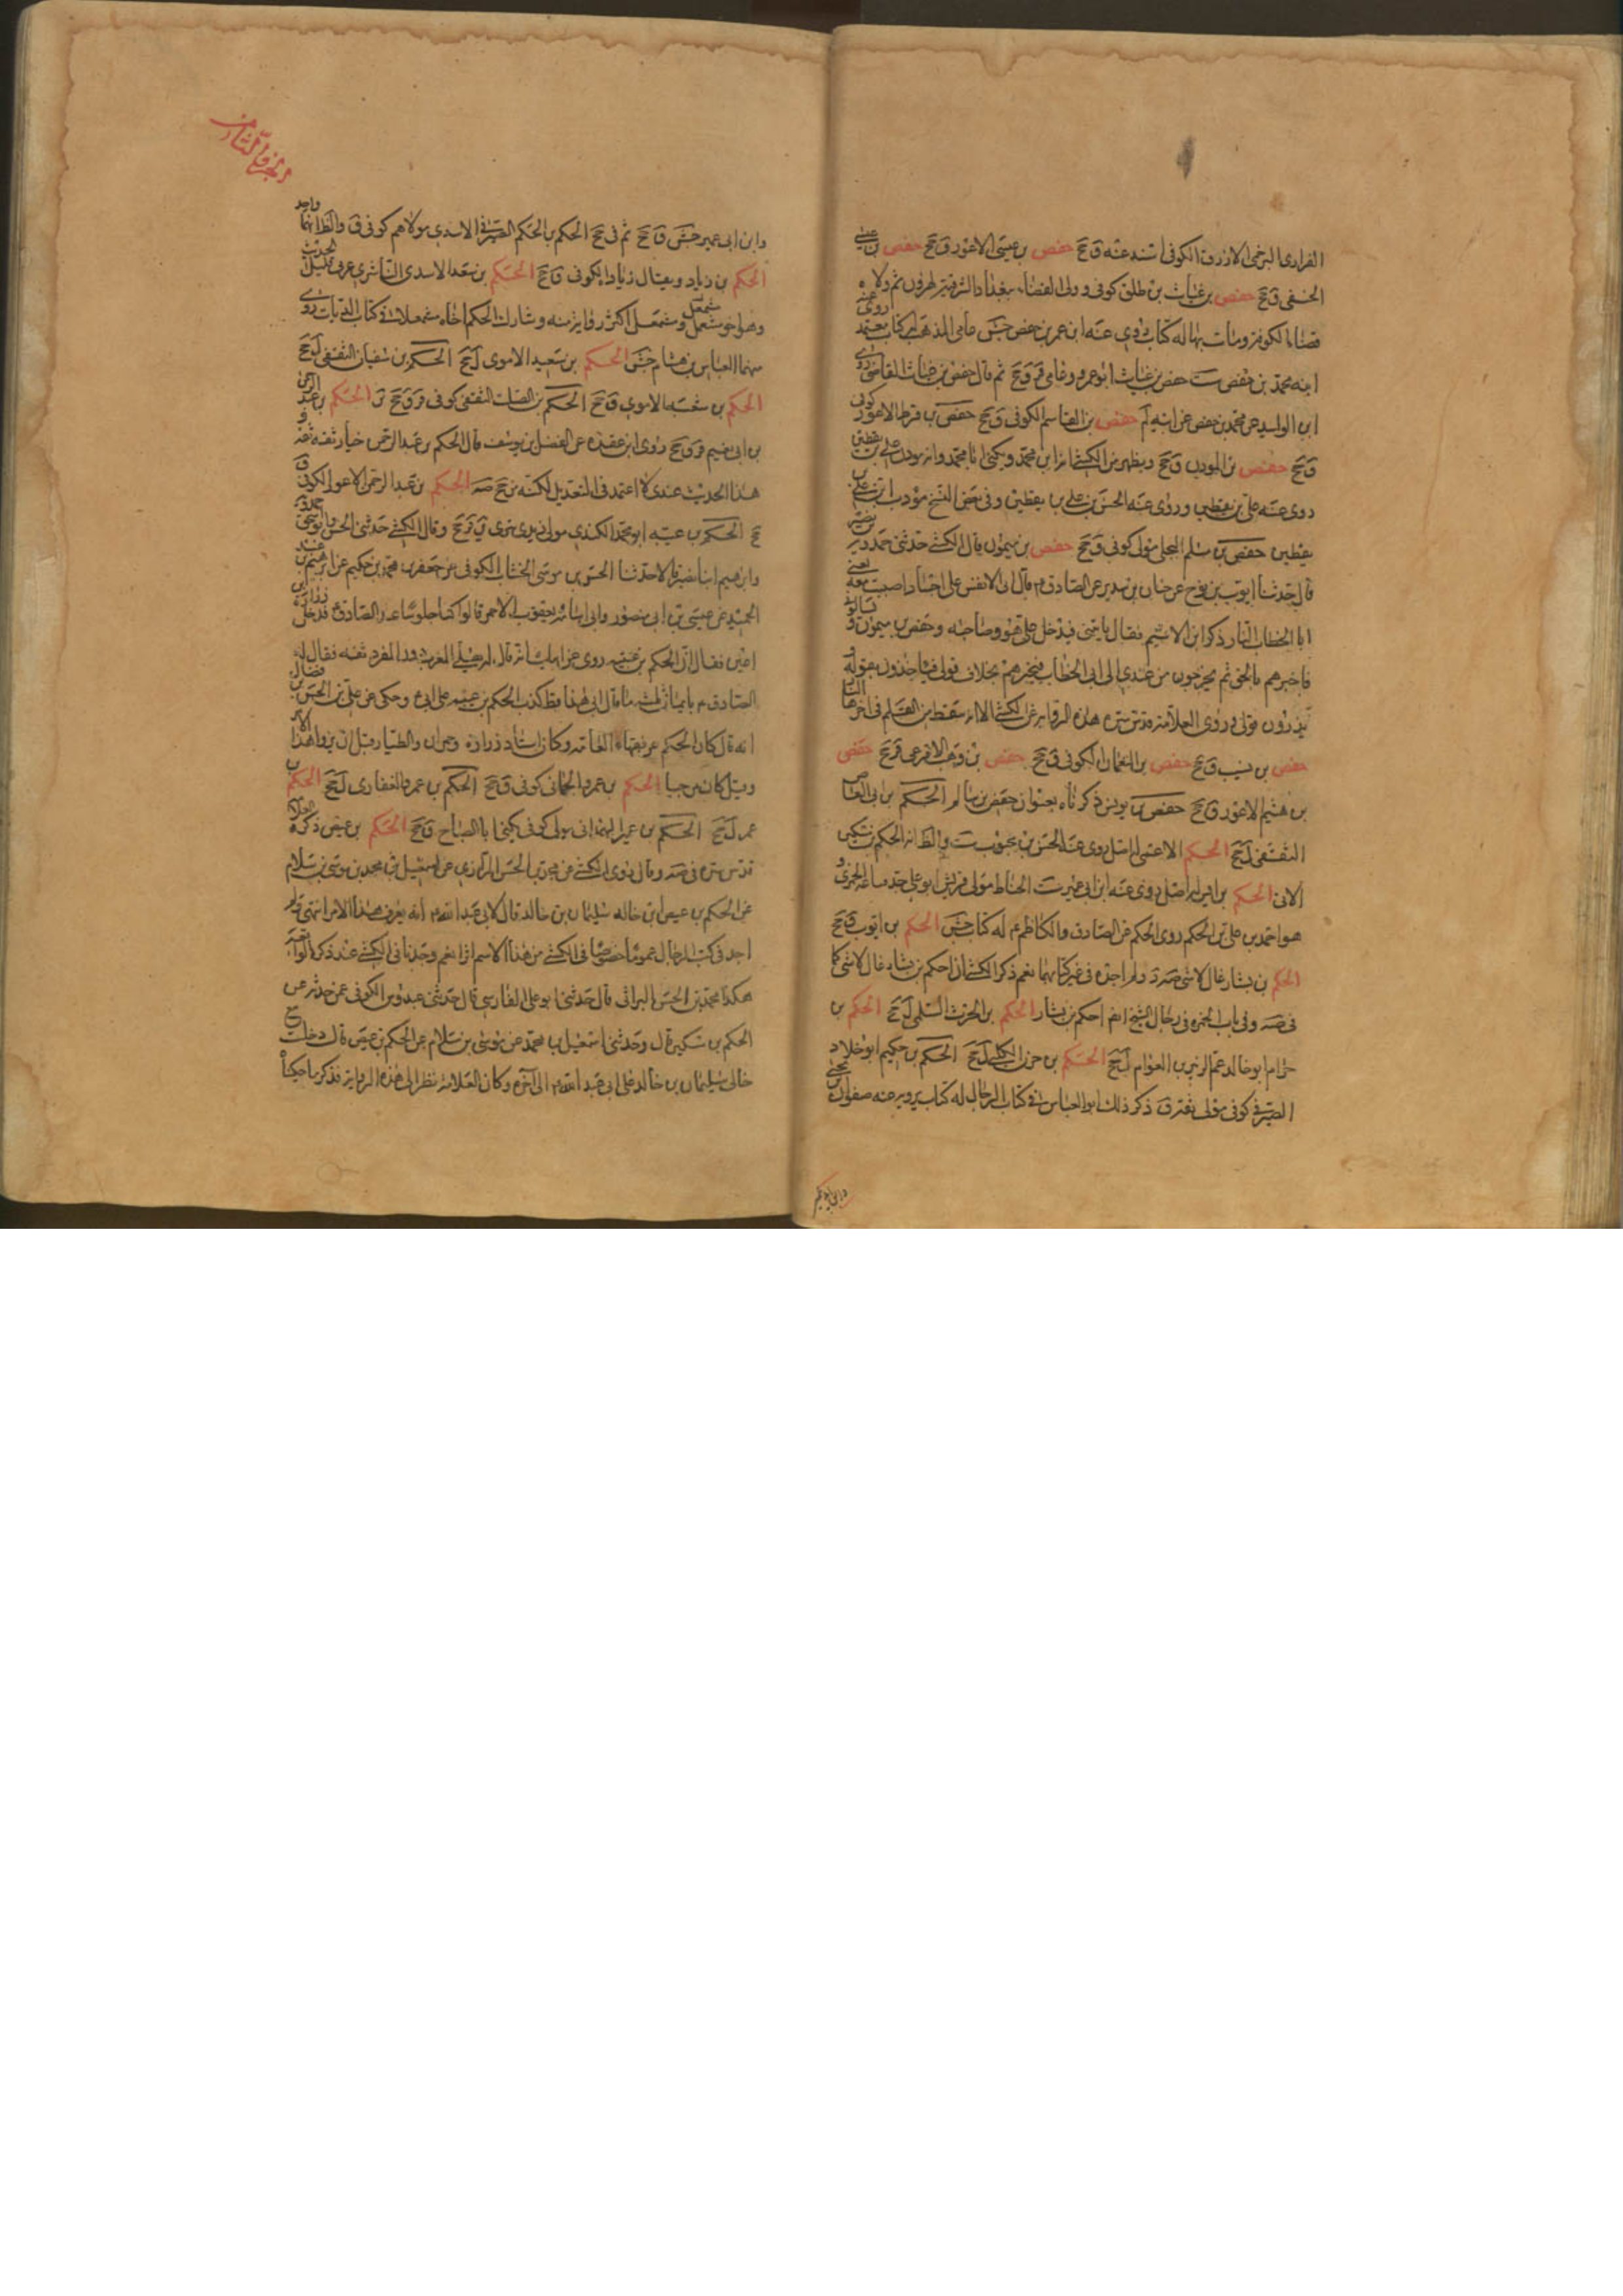 الفزارى البرجمى الازرق الكوفى اسند عنه ق جخ حفص بن عيسى الاعور ق جخ حفص بن
الحنفى ق جخ حفص بن غياث بن طلق كوفى وولى القضاء ببغداد الشرقية لهرون ثم ولاه
قضاء الكوفة ومات بها له كتاب روى عنه ابنه عمر بن حفص جش عامى المذهب له كتاب معتمد
ابنه محمد بن حفص ست حفص بن غياث ابو عمرو وعامى قر ق جخ ثم قال حفص بن غياث القاضى روى
ابن الوليد عن محمد بن حفص عن ابيه لم حفص بن القاسم الكوفى ق جخ حفص بن قرط الاعور كوفى
ق جخ حفص بن المؤذن ق جخ ويظهر من الكشى انه ابن محمد ويكنى ابا محمد وانه مؤذن على بن يقطين
روى عنه على بن يقطين وروى عنه الحسن بن على بن يقطين وفى بعض النسخ مؤدب ابن على بن
يقطين حفص بن سلم البجلى مولى كوفى ق جخ حفص بن ميمون قال الكشى حدثنى حمدويه بن نصير
قال حدثنا ايوب بن نوح عن حنان بن سدير عن الصادق ع قال انى لانفس على اجساد اصيبت معه يعنى
ابا الخطاب النار ثم ذكر ابن الاشيم فقال يأتينى فيدخل على هو وصاحبه وحفص بن ميمون و
فاخبرهم بالحق ثم يخرجون من عندى الى ابى الخطاب فيخبرهم بخلاف قولى فيأخذون بقوله و
يذرون قولى وروى العلامة قدس سره هذه الرواية عن الكشى الا انه سقط من القلم فى آخرها
حفص بن نسيب ق جخ حفص بن النعمان الكوفى ق جخ حفص بن وهب الاقرعى ق جخ حفص
بن هشيم الاعور ق جخ حفص بن يونس ذكرناه بعنوان حفص بن سالم الحكم بن ابى العاص
الثقفى ل جخ الحكم الاعمى له اصل روى عنه الحسن بن محبوب ست والظ انه الحكم بن مسكين
الاتى الحكم بن ايمن له اصل روى عنه ابن ابى عمير ست الحناط مولى قريش ابو على جد ساعة الخمرى و
هو احمد بن على بن الحكم روى الحكم عن الصادق والكاظم ع له كتاب جش الحكم بن ايوب ق جخ
الحكم بن بشار غال لا شئ صه د ولم اجده فى غير كتابيهما نعم ذكر الكشى ان احكم بن بشار غال لا شئ كما
فى صه وفى باب الهمزة فى رجال الشيخ انه احكم بن بشار الحكم بن الحرث السلمى ل جخ الحكم بن
حزام ابو خالد عم الزبير بن العوام ل جخ الحكم بن حزن الكلبى ل جخ الحكم بن حكيم ابو خلاد
الصيرفى كوفى مولى ثقة ق ذكر ذلك ابو العباس فى كتاب الرجال له كتاب يرويه عنه صفوان بن يحيى
وابن ابى عمير
الجزء الثامن
وابن ابى عمير جش ق جخ ثم فى جخ الحكم بن الحكم الصيرفى الاسدى مولاهم كوفى ق والظ انهما واحد
الحكم بن زياد ويقال زياد الكوفى ق جخ الحكم بن سعد الاسدى الناشرى عربى قليل الحديث
وهو اخو مشمعل ومشمعل اكثر رواية منه وشارك الحكم اخاه مشمعلا فى كتاب الديات روى
عنهما العباس بن هشام جش الحكم بن سعيد الاموى ل جخ الحكم بن سفيان الثقفى ل جخ
الحكم بن شعبه الاموى ق جخ الحكم بن الصلت الثقفى كوفى قر ق جخ الحكم بن عبد الرحمن
بن ابى نعيم قر ق جخ روى ابن عقده عن الفضل بن يوسف قال الحكم بن عبد الرحمن خيار ثقة ثقة و
هذا الحديث عندى لا اعتمد فى التعديل لكنه مرجح صه الحكم بن عبد الرحمن الاعور الكوفى ق
جخ الحكم بن عتيبه ابو محمد الكندى مولى زيدى بترى ين قر جخ وقال الكشى حدثنى ابو الحسن وابو اسحق حمدويه
وابرهيم ابنا نصير قالا حدثنا الحسن بن موسى الخشاب الكوفى عن جعفر بن محمد بن حكيم عن ابرهيم بن عبد
الحميد عن عيسى بن ابى منصور وابى اسامة ويعقوب الاحمر قالوا كنا جلوسا عند الصادق ع فدخل زرارة بن
اعين فقال ان الحكم بن عتيبه روى عن ابيك انه قال له صل المغرب دون المزدلفة فقال له
الصادق ع بايمان ثلثة ما قال ابى هذا قط كذب الحكم بن عتيبه على ابى ع وحكى عن على بن الحسن بن فضال
انه قال كان الحكم من فقهاء العامه وكان استاد زرارة وحمران والطيار قبل ان يروا هذا الامر
وقيل كان مرجيا الحكم بن عمرو الجمانى كوفى ق جخ الحكم بن عمرو الغفارى ل جخ الحكم بن
عمر ل جخ الحكم بن عمير الهمدانى مولى كوفى يكنى ابا الصباح ق جخ الحكم بن عيص ذكره العلامة
قدس سره فى صه وقال روى الكشى عن محمد بن الحسن البراثى عن اسمعيل بن محمد بن موسى بن سلام
عن الحكم بن عيص ابن خاله سليمان بن خالد قال لابى عبد الله ع انه يعرف هذا الامر انتهى ولم
اجد فى كتب الرجال عموما وخصوصا فى الكشى من هذا الاسم اثرا نعم وجدنا فى الكشى عند ذكر
هكذا محمد بن الحسن البراثى قال حدثنى ابو على الفارسى قال حدثنى عبدوس الكوفى عمن حدثه عن
الحكم بن مسكين قال وحدثنى اسمعيل بن محمد عن موسى بن سلام عن الحكم بن عيص قال دخلت مع
خالى سليمان بن خالد على ابى عبد الله ع الى آخره وكان العلامة نظر الى هذه الرواية فذكر ما حكينا